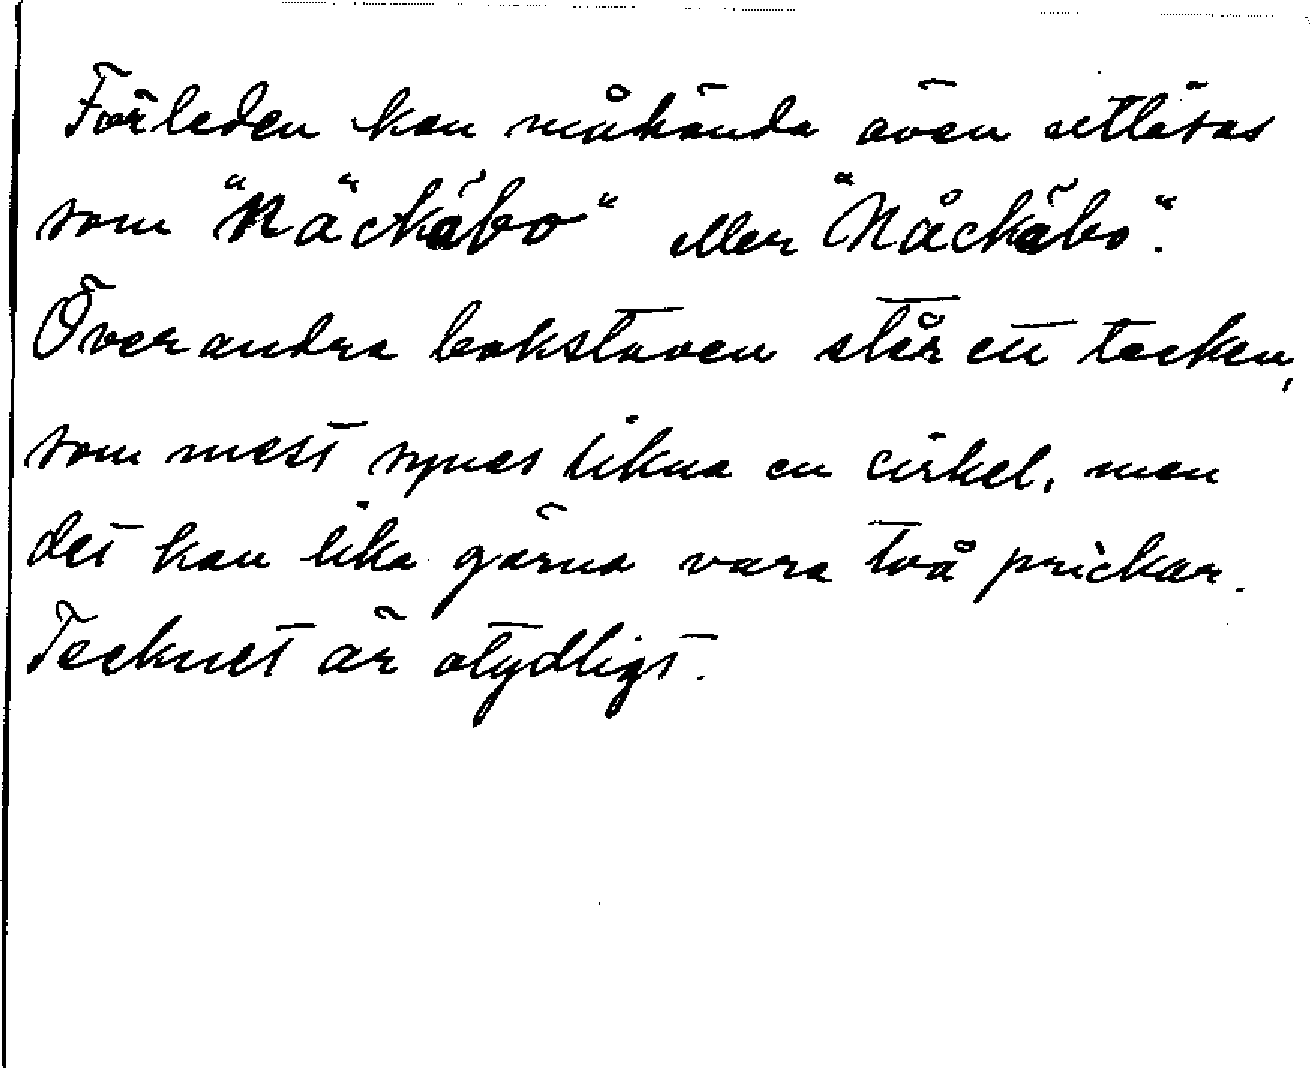 Förleden kan måhända även utläsas
som "Näckäbo" eller "Nåckäbo".
Över andra bokstaven står ett tecken,
som mest synes likna en cirkel, men
det kan lika gärna vara två prickar.
Tecknet är otydligt.